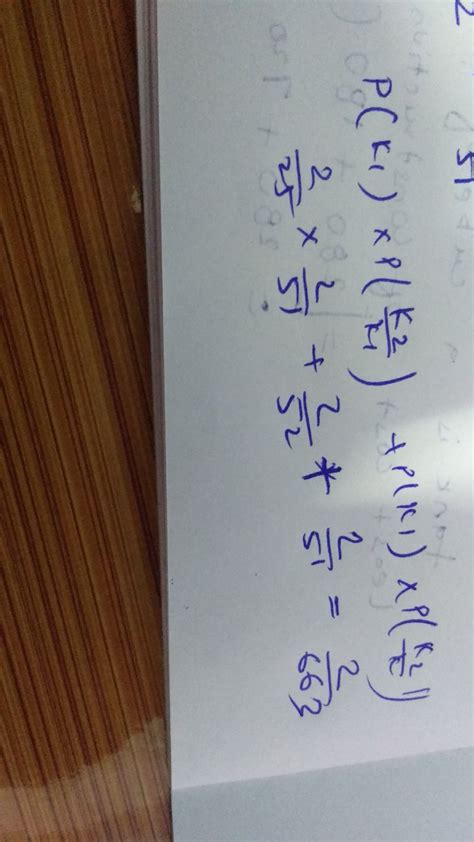 2 51
P(K1) x P(K2/K1) + P(K1) x P(K2/K1)
2/25 x 2/51 + 2/52 * 2/51 = 2/663